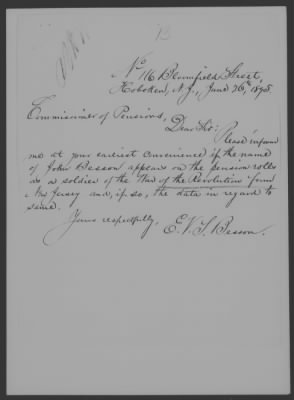 13
No 116 Bloomfield Street,
Hoboken, N.J., June 26th 1895.
Commissioner of Pensions,
Dear Sir:
Please inform
me at your earliest convenience if the name
of John Besson appears on the pension rolls
as a soldier of the War of the Revolution from
New Jersey and, if so, the data in regard to
same.
Yours respectfully,
E. V. S. Besson.